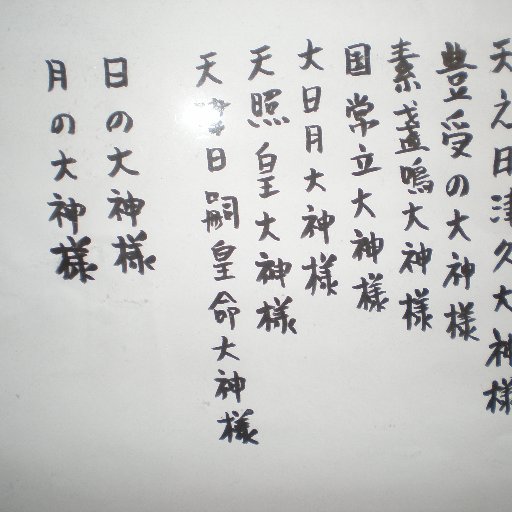 天之日津久大神様
豊受の大神様
素盞鳴大神様
国常立大神様
大日月大神様
天照皇大神様
天 日嗣皇命大神様
日の大神様
月の大神様